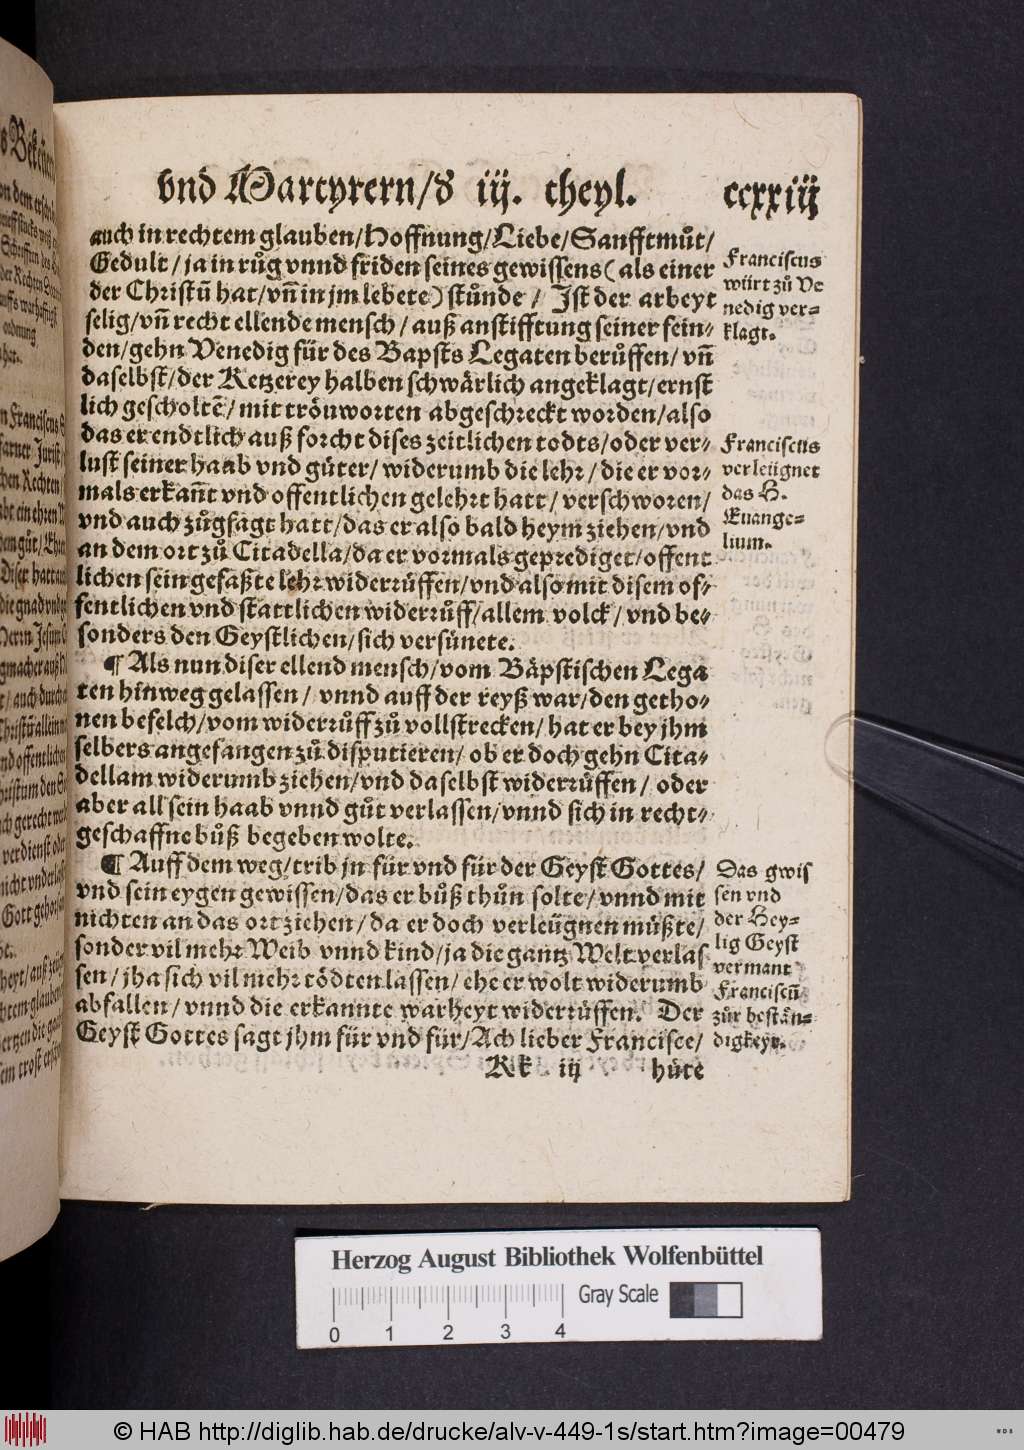 vnd Martyrern/d iij. theyl. ccxxiij
auch in rechtem glauben/Hoffnung/Liebe/Sanfftmůt/
Gedult/ ja in růg vnnd friden seines gewissens (als einer
der Christū hat/vn̄ in jm lebete) stůnde / Ist der arbeyt
selig/vn̄ recht ellende mensch/ auß anstifftung seiner fein⸗
den/gehn Venedig für des Bapsts Legaten berůffen/ vn̄
daselbst/der Ketzerey halben schwärlich angeklagt/ernst
lich gescholtē/ mit tröuworten abgeschreckt worden/also
das er endtlich auß forcht dises zeitlichen todts/oder ver⸗
lust seiner haab vnd güter/ widerumb die lehr/ die er vor⸗
mals erkan̄t vnd offentlichen gelehrt hatt/ verschworen/
vnd auch zůgsagt hatt/das er also bald heym ziehen/vnd
an dem ort zů Citadella/da er vormals geprediget/offent
lichen sein gefaßte lehr widerrůffen/vnd also mit disem of⸗
fentlichen vnd stattlichen widerrůff/allem volck/ vnd be⸗
sonders den Geystlichen/sich versünete.
¶ Als nun diser ellend mensch/vom Bäpstischen Lega
ten hinweg gelassen/ vnnd auff der reyß war/den getho⸗
nen befelch/vom widerrůff zů vollstrecken/ hat er bey jhm
selbers angefangen zů disputieren/ ob er doch gehn Cita⸗
dellam widerumb ziehen/vnd daselbst widerrůffen/ oder
aber all sein haab vnnd gůt verlassen/vnnd sich in recht⸗
geschaffne bůß begeben wolte.
¶ Auff dem weg/trib jn für vnd für der Geyst Gottes/
vnd sein eygen gewissen/das er bůß thůn solte/ vnnd mit
nichten an das ort ziehen/ da er doch verleügnen müßte/
sonder vil mehr Weib vnnd kind/ja die gantz Welt verlas
sen/ jha sich vil mehr tödten lassen/ ehe er wolt widerumb
abfallen/ vnnd die erkannte warheyt widerrůffen. Der
Geyst Gottes sagt jhm für vnd für/Ach lieber Francisce/
Kk iij hüte
Franciscus
würt zů Ve
nedig ver⸗
klagt.
Franciscus
verleügnet
das H.
Euange⸗
lium.
Das gwis
sen vnd
der Hey⸗
lig Geyst
vermant
Franciscū
zůr bestän⸗
digkeyt.
Herzog August Bibliothek Wolfenbüttel
Gray Scale
0 1 2 3 4
© HAB http://diglib.hab.de/drucke/alv-v-449-1s/start.htm?image=00479